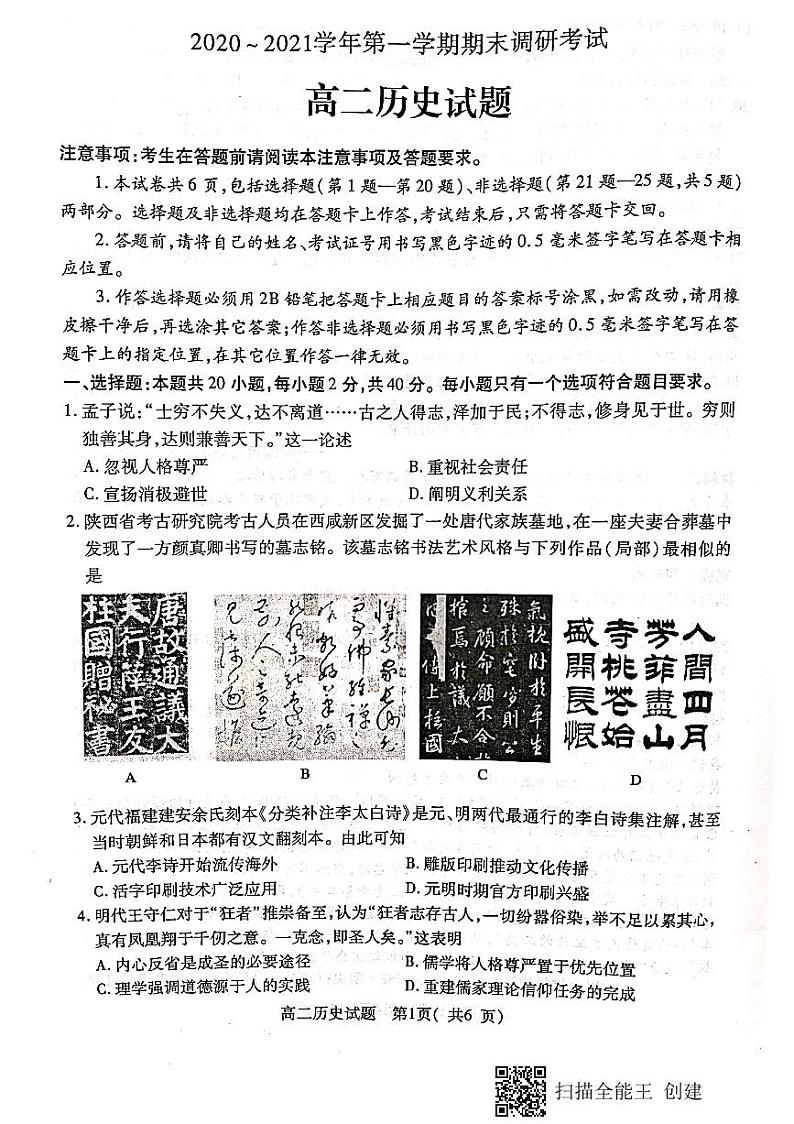 2020～2021学年第一学期期末调研考试
高二历史试题
注意事项:考生在答题前请阅读本注意事项及答题要求。
1.本试卷共6页,包括选择题(第1题—第20题)、非选择题(第21题—25题,共5题)
两部分。选择题及非选择题均在答题卡上作答,考试结束后,只需将答题卡交回。
2.答题前,请将自己的姓名、考试证号用书写黑色字迹的0.5毫米签字笔写在答题卡相
应位置。
3.作答选择题必须用2B铅笔把答题卡上相应题目的答案标号涂黑,如需改动,请用橡
皮擦干净后,再选涂其它答案;作答非选择题必须用书写黑色字迹的0.5毫米签字笔写在答
题卡上的指定位置,在其它位置作答一律无效。
一、选择题:本题共20小题,每小题2分,共40分。每小题只有一个选项符合题目要求。
1.孟子说:“士穷不失义,达不离道……古之人得志,泽加于民;不得志,修身见于世。穷则
独善其身,达则兼善天下。”这一论述
A.忽视人格尊严 B.重视社会责任
C.宣扬消极避世 D.阐明义利关系
2.陕西省考古研究院考古人员在西咸新区发掘了一处唐代家族墓地,在一座夫妻合葬墓中
发现了一方颜真卿书写的墓志铭。该墓志铭书法艺术风格与下列作品(局部)最相似的
是
唐故通議大
夫行薛王友
柱國贈祕書
人間四月
芳菲盡山
寺桃花始
盛開長恨
A B C D
3.元代福建建安余氏刻本《分类补注李太白诗》是元、明两代最通行的李白诗集注解,甚至
当时朝鲜和日本都有汉文翻刻本。由此可知
A.元代李诗开始流传海外 B.雕版印刷推动文化传播
C.活字印刷技术广泛应用 D.元明时期官方印刷兴盛
4.明代王守仁对于“狂者”推崇备至,认为“狂者志存古人,一切纷嚣俗染,举不足以累其心,
真有凤凰翔于千仞之意。一克念,即圣人矣。”这表明
A.内心反省是成圣的必要途径 B.儒学将人格尊严置于优先位置
C.理学强调道德源于人的实践 D.重建儒家理论信仰任务的完成
高二历史试题 第1页( 共6 页)
扫描全能王 创建